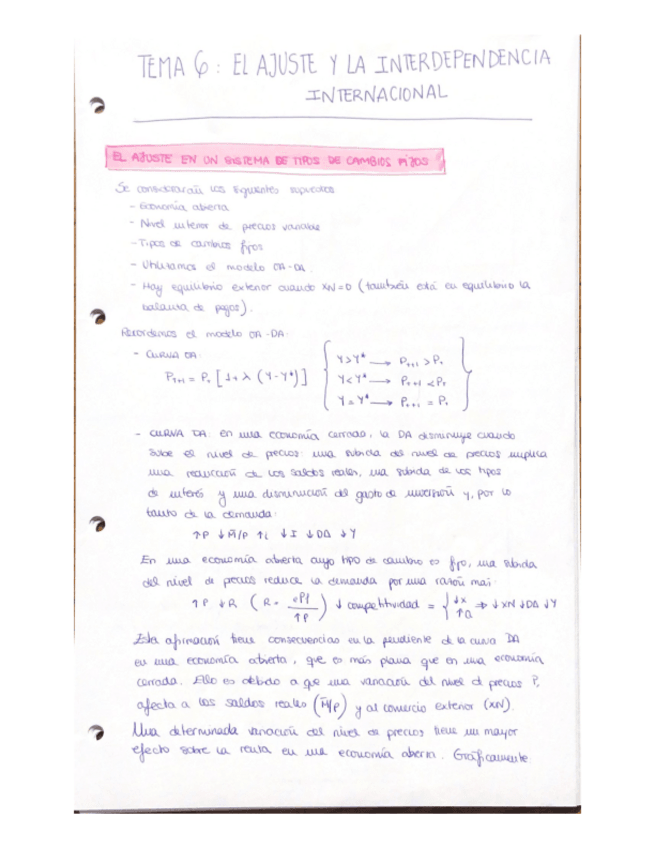 TEMA 6: EL AJUSTE Y LA INTERDEPENDENCIA
INTERNACIONAL
EL AJUSTE EN UN SISTEMA DE TIPOS DE CAMBIOS FIJOS
Se considerarán los siguientes supuestos
- Economía abierta
- Nivel interior de precios variable
- Tipos de cambios fijos
- Utilizamos el modelo OA-DA.
- Hay equilibrio exterior cuando XN=0 (también está en equilibrio la
balanza de pagos).
Recordemos el modelo OA-DA:
- CURVA OA:
Pt+1 = Pt [1+λ (Y-Y*)] { Y>Y* → Pt+1 > Pt
Y<Y* → Pt+1 < Pt
Y=Y* → Pt+1 = Pt }
- CURVA DA: en una economía cerrada, la DA disminuye cuando
sube el nivel de precios: una subida del nivel de precios implica
una reducción de los saldos reales, una subida de los tipos
de interés y una disminución del gasto de inversión y, por lo
tanto de la demanda:
↑P ↓M̄/P ↑i ↓I ↓DA ↓Y
En una economía abierta cuyo tipo de cambio es fijo, una subida
del nivel de precios reduce la demanda por una razón mas:
↑P ↓R (R = ePf / ↑P) ↓ competitividad = { ↓X ↑Q ⇒ ↓XN ↓DA ↓Y
Esta afirmación tiene consecuencias en la pendiente de la curva DA
en una economía abierta, que es más plana que en una economía
cerrada. Ello es debido a que una variación del nivel d precios P,
afecta a los saldos reales (M̄/P) y al comercio exterior (XN).
Una determinada variación del nivel de precios tiene un mayor
efecto sobre la renta en una economía abierta. Gráficamente